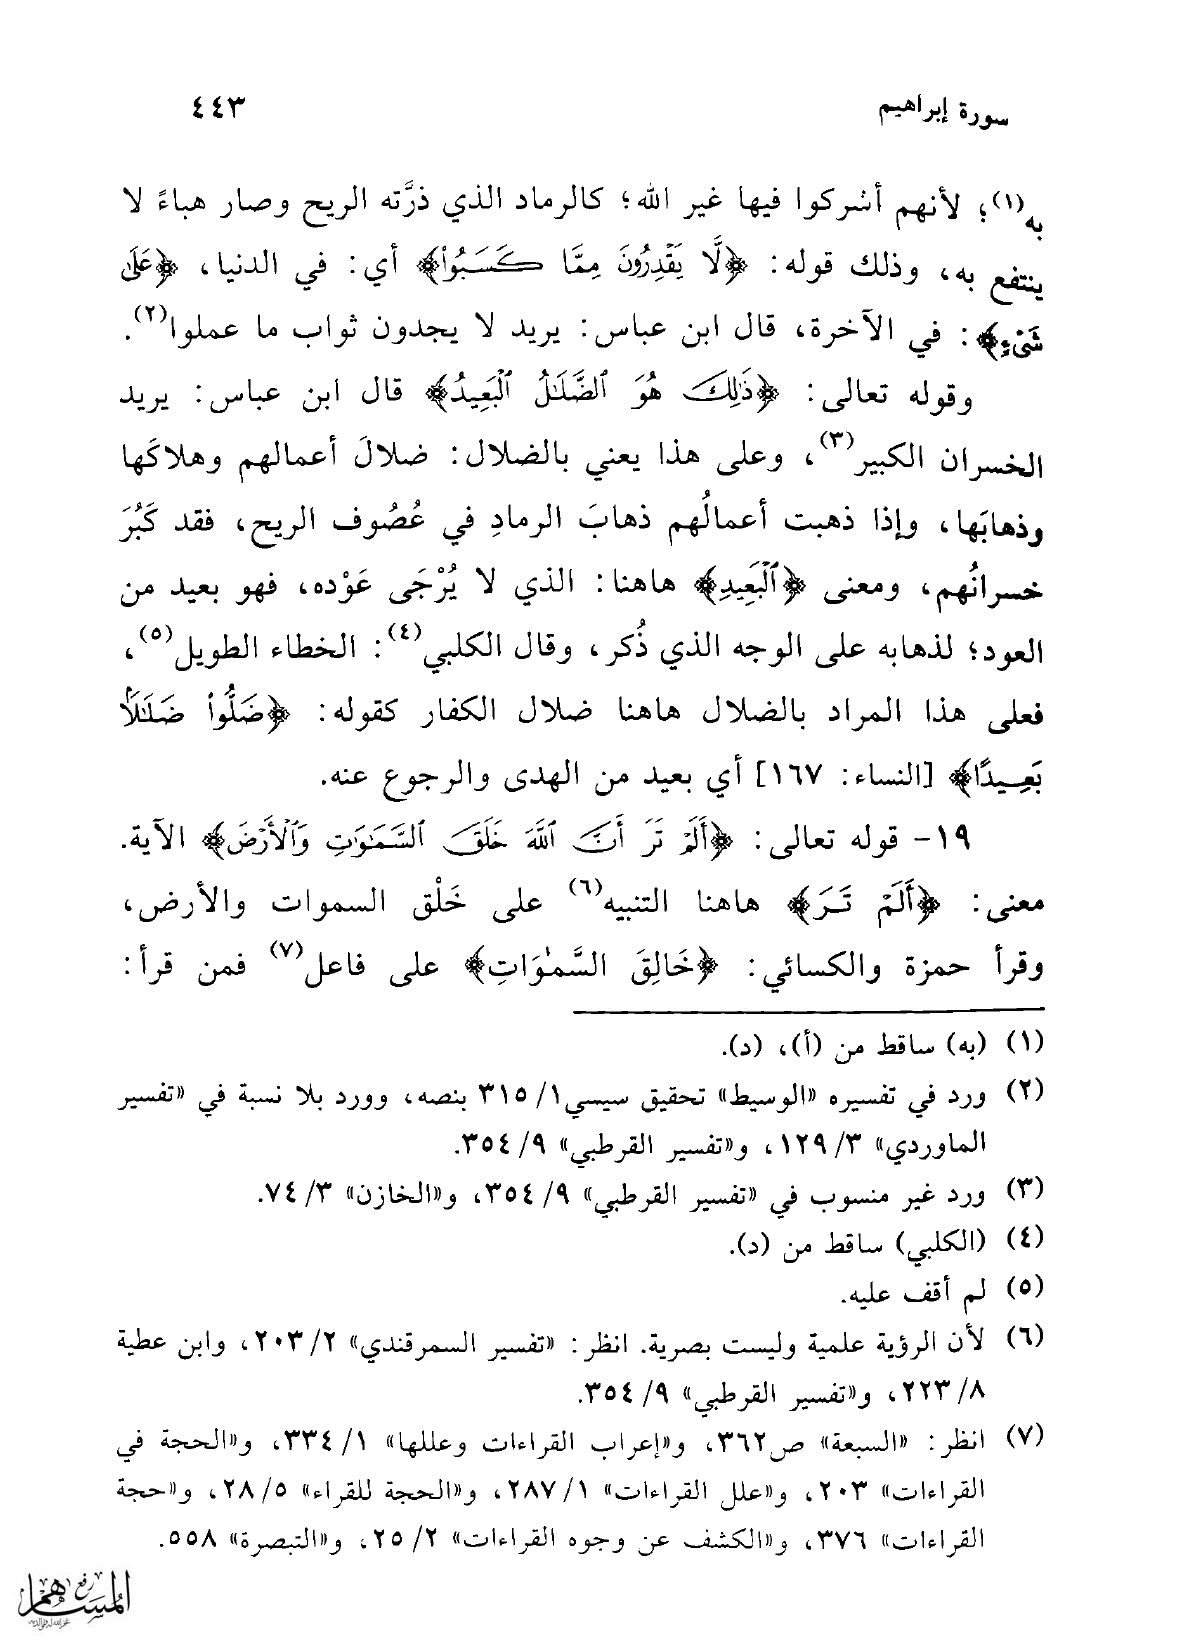 سورة إبراهيم ٤٤٣
به(١)؛ لأنهم أشركوا فيها غير الله؛ كالرماد الذي ذرَّته الريح وصار هباءً لا
ينتفع به، وذلك قوله: ﴿لَّا يَقْدِرُونَ مِمَّا كَسَبُوا۟﴾ أي: في الدنيا، ﴿عَلَىٰ
شَىْءٍ﴾: في الآخرة، قال ابن عباس: يريد لا يجدون ثواب ما عملوا(٢).
وقوله تعالى: ﴿ذَٰلِكَ هُوَ ٱلضَّلَٰلُ ٱلْبَعِيدُ﴾ قال ابن عباس: يريد
الخسران الكبير(٣)، وعلى هذا يعني بالضلال: ضلالَ أعمالهم وهلاكَها
وذهابَها، وإذا ذهبت أعمالُهم ذهابَ الرمادِ في عُصُوف الريح، فقد كَبُرَ
خسرانُهم، ومعنى ﴿ٱلْبَعِيدِ﴾ هاهنا: الذي لا يُرْجَى عَوْده، فهو بعيد من
العود؛ لذهابه على الوجه الذي ذُكر، وقال الكلبي(٤): الخطاء الطويل(٥)،
فعلى هذا المراد بالضلال هاهنا ضلال الكفار كقوله: ﴿ضَلُّوا۟ ضَلَٰلًۢا
بَعِيدًا﴾ [النساء: ١٦٧] أي بعيد من الهدى والرجوع عنه.
١٩- قوله تعالى: ﴿أَلَمْ تَرَ أَنَّ ٱللَّهَ خَلَقَ ٱلسَّمَٰوَٰتِ وَٱلْأَرْضَ﴾ الآية.
معنى: ﴿أَلَمْ تَرَ﴾ هاهنا التنبيه(٦) على خَلْق السموات والأرض،
وقرأ حمزة والكسائي: ﴿خَالِقَ السَّمٰوَاتِ﴾ على فاعل(٧) فمن قرأ:
(١) (به) ساقط من (أ)، (د).
(٢) ورد في تفسيره «الوسيط» تحقيق سيسي١/ ٣١٥ بنصه، وورد بلا نسبة في «تفسير
الماوردي» ٣/ ١٢٩، و«تفسير القرطبي» ٩/ ٣٥٤.
(٣) ورد غير منسوب في «تفسير القرطبي» ٩/ ٣٥٤، و«الخازن» ٣/ ٧٤.
(٤) (الكلبي) ساقط من (د).
(٥) لم أقف عليه.
(٦) لأن الرؤية علمية وليست بصرية. انظر: «تفسير السمرقندي» ٢/ ٢٠٣، وابن عطية
٨/ ٢٢٣، و«تفسير القرطبي» ٩/ ٣٥٤.
(٧) انظر: «السبعة» ص٣٦٢، و«إعراب القراءات وعللها» ١/ ٣٣٤، و«الحجة في
القراءات» ٢٠٣، و«علل القراءات» ١/ ٢٨٧، و«الحجة للقراء» ٥/ ٢٨، و«حجة
القراءات» ٣٧٦، و«الكشف عن وجوه القراءات» ٢/ ٢٥، و«التبصرة» ٥٥٨.